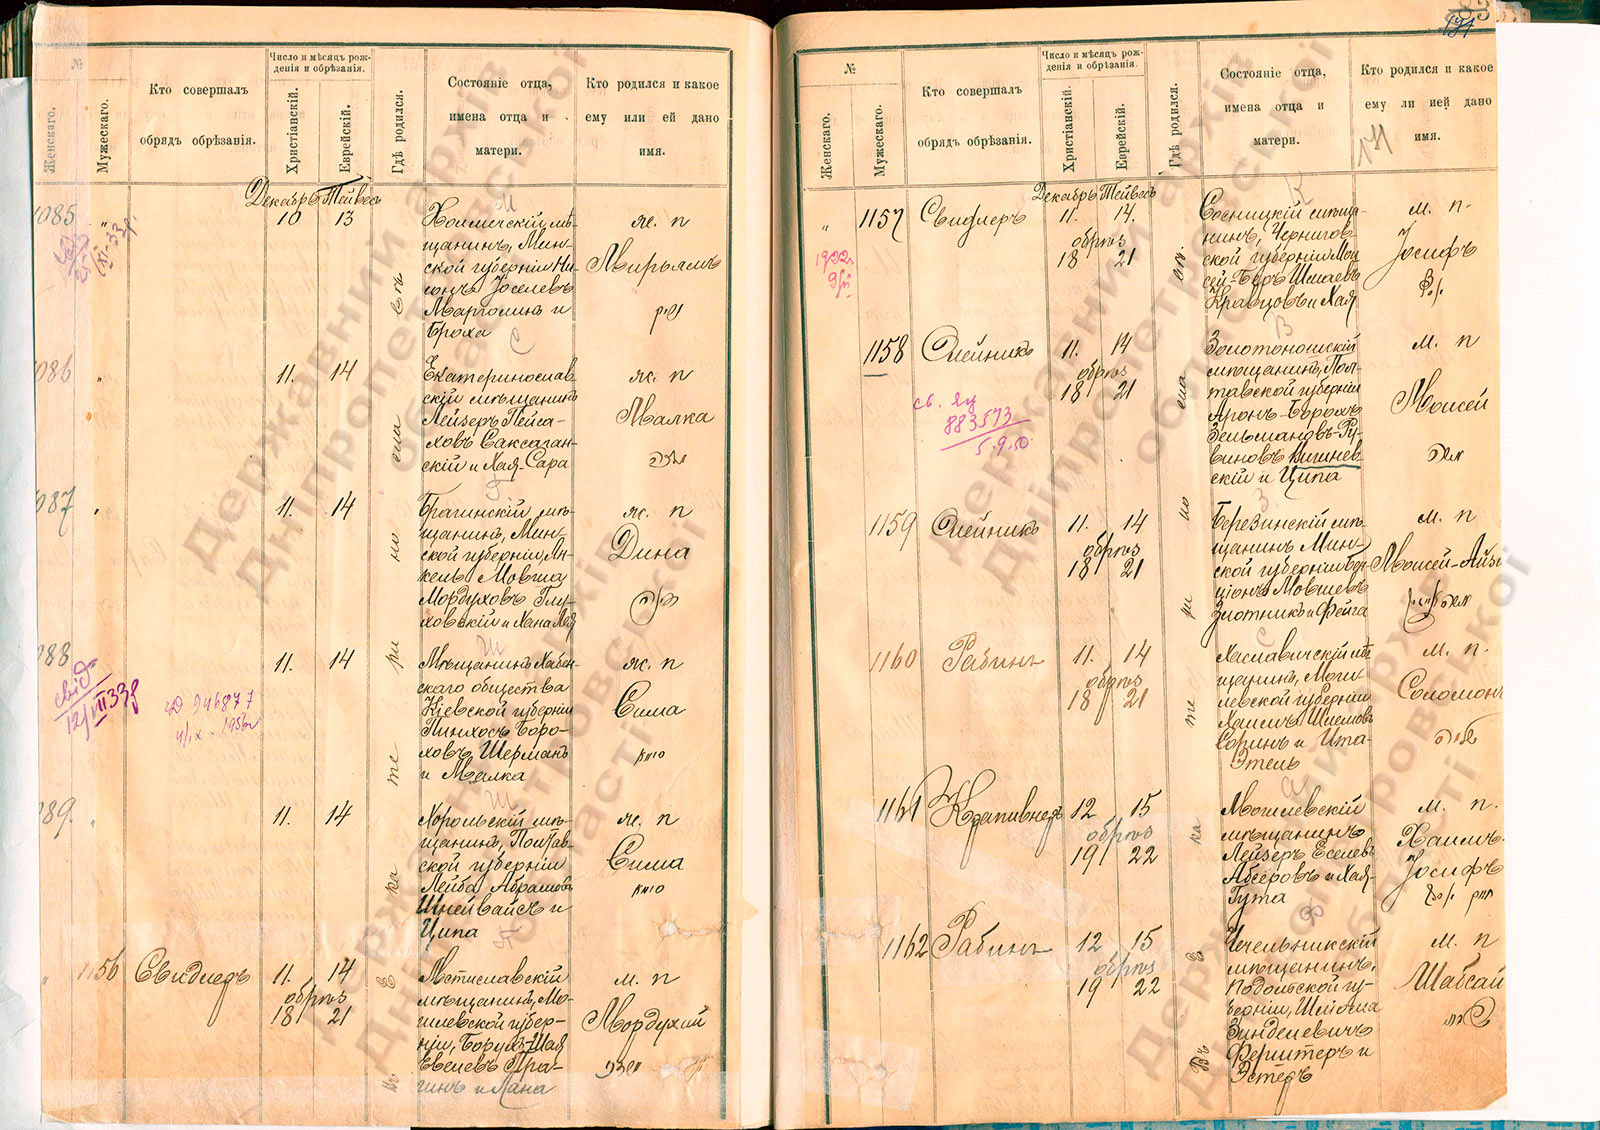 №
Женскаго.
Мужескаго.
Кто совершалъ
обрядъ обрѣзанія.
Число и мѣсяцъ рож-
денія и обрѣзанія.
Христіанскій.
Еврейскій.
Гдѣ родился.
Состояніе отца,
имена отца и
матери.
Кто родился и какое
ему или ей дано
имя.
Декабрь Тейвесъ
1085
"
10 13
щанинъ, Мин-
ской губерніи Ни-
сонъ Іоселевъ
Марголинъ и
Броха
ж. п
Мирьямъ
086
"
11. 14
Екатеринослав-
скій мѣщанинъ
Лейзеръ Пейса-
ховъ Саксаган-
скій и Хая-Сара
ж. п
Малка
087
"
11. 14
Брагинскій мѣ-
щанинъ, Мин-
ской губерніи, Ян-
кель Мовша
Мордуховъ Глу-
ховскій и Хана Лея
ж. п
Дина
088
свід.
12/VIII 33 р
946877
4/IX - 1956г
11. 14
Мѣщанинъ Хабен-
скаго общества
Кіевской губерніи
Пинхосъ Боро-
ховъ Шерманъ
и Малка
ж. п
Сима
089.
"
11. 14
Хорольскій мѣ-
щанинъ, Полтав-
ской губерніи
Лейба Абрамовъ
Шнейвайсъ и
Ципа
ж. п
Сима
" 1156
Свидлеръ
11. 14
обрѣз
18 21
Мстиславскій
мѣщанинъ, Мо-
гилевской губер-
ніи, Борухъ-Шая
Евелевъ Пра-
гинъ и Хана
м. п
Мордухай
Въ Екатеринославѣ
171
№
Женскаго.
Мужескаго.
Кто совершалъ
обрядъ обрѣзанія.
Число и мѣсяцъ рож-
денія и обрѣзанія.
Христіанскій.
Еврейскій.
Гдѣ родился.
Состояніе отца,
имена отца и
матери.
Кто родился и какое
ему или ей дано
имя.
171
Декабрь Тейвесъ
" 1157
1922г.
Свидлеръ
11. 14.
обрѣз
18 21
Сосницкій мѣща-
нинъ, Чернигов-
ской губерніи Мои
сей-Беръ Шмаевъ
Кравцовъ и Хая
м. п.
Іосифъ
1158
Олейникъ
св. яц
883573
5.9.50
11. 14
обрѣз
18 21
Золотоношскій
мѣщанинъ, Пол-
тавской губерніи
Аронъ-Борохъ
Зельмановъ-Ру-
виновъ Кишнев-
скій и Ципа
м. п
Моисей
משה
1159
Олейникъ
11. 14
обрѣз
18 21
Березинскій мѣ-
щанинъ Мин-
ской губерніи Бен-
ціонъ Мовшевъ
Злотникъ и Фейга
м. п
Моисей-Айзи
1160
Рабинъ
11. 14
обрѣз
18 21
Хаславичскій мѣ
щанинъ, Моги
левской губерніи
Хаимъ Шлемовъ
Соринъ и Ита-
Этель
м. п.
Соломонъ
1161
Крапивнеръ
12 15
обрѣз
19 22
Могилевскій
мѣщанинъ
Лейзеръ Еселевъ
Абезровъ и Хая-
Гута
м. п.
Хаимъ-
Іосифъ
1162
Рабинъ
12 15
обрѣз
19 22
Чечельникскій
мѣщанинъ,
Подольской гу-
берніи, Шлёма
Зинделевичъ
Ферштеръ и
Эстеръ
м. п
Шабсай
Въ Екатеринославѣ
Державний архів
Дніпропетровської
області